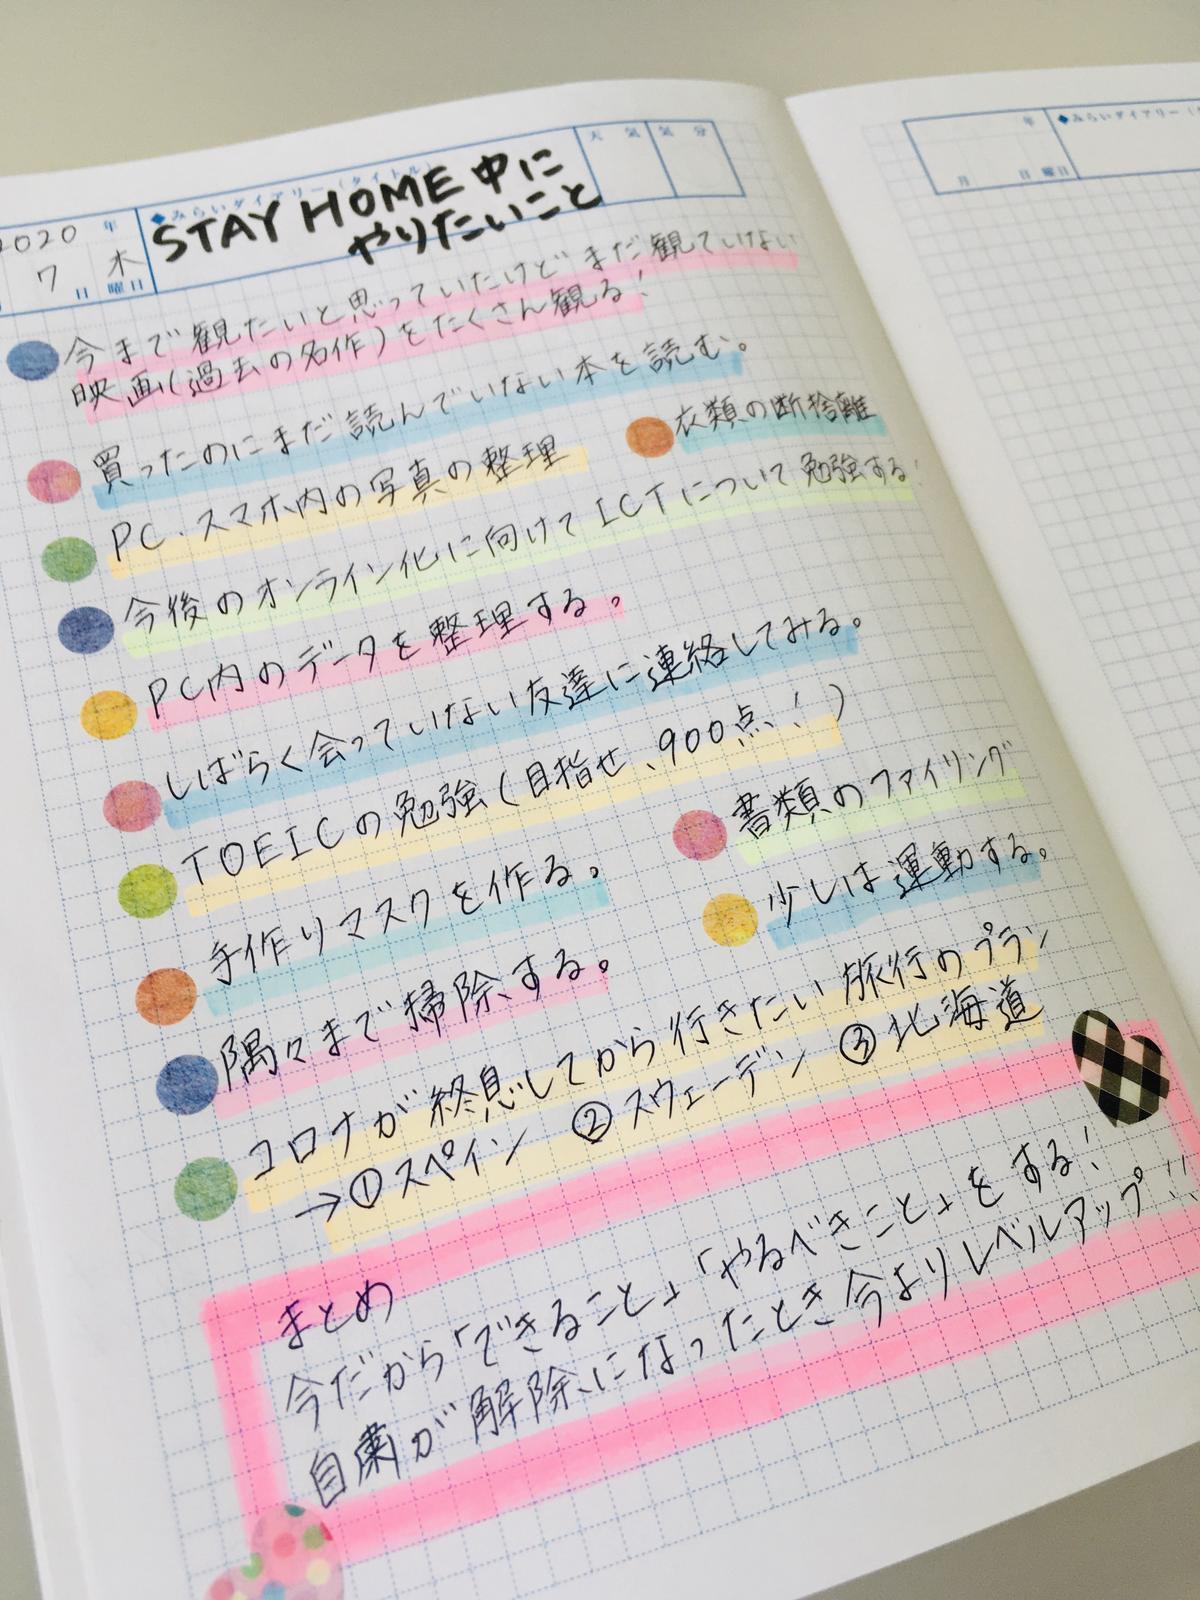 2020 年
7 日 木 曜日
◆みらいダイアリー(タイトル)
STAY HOME 中に
やりたいこと
天気 気分
今まで観たいと思っていたけどまだ観ていない
映画(過去の名作)をたくさん観る!
買ったのにまだ読んでいない本を読む。
PC、スマホ内の写真の整理
衣類の断捨離
今後のオンライン化に向けてICTについて勉強する!
PC内のデータを整理する。
しばらく会っていない友達に連絡してみる。
TOEICの勉強(目指せ、900点!)
書類のファイリング
手作りマスクを作る。
少しは運動する。
隅々まで掃除する。
コロナが終息してから行きたい旅行のプラン
→①スペイン ②スウェーデン ③北海道
まとめ
今だから「できること」「やるべきこと」をする!
自粛が解除になったとき今よりレベルアップ!!
年
月 日 曜日
◆みらいダイアリー(